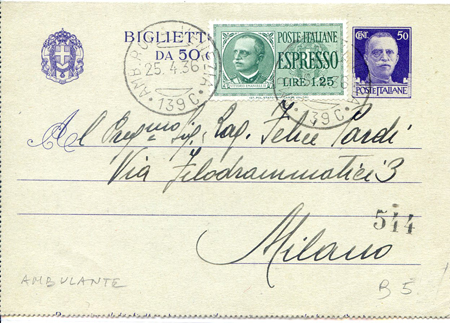 BIGLIETTO
DA 50 C
POSTE ITALIANE
ESPRESSO
LIRE 1.25
CENT. 50
POSTE ITALIANE
25.4.36
139C
139C
Al Pregmo Sig. Rag. Felice Pardi
Via Filodrammatici 3
544
Milano
AMBULANTE
B 5.